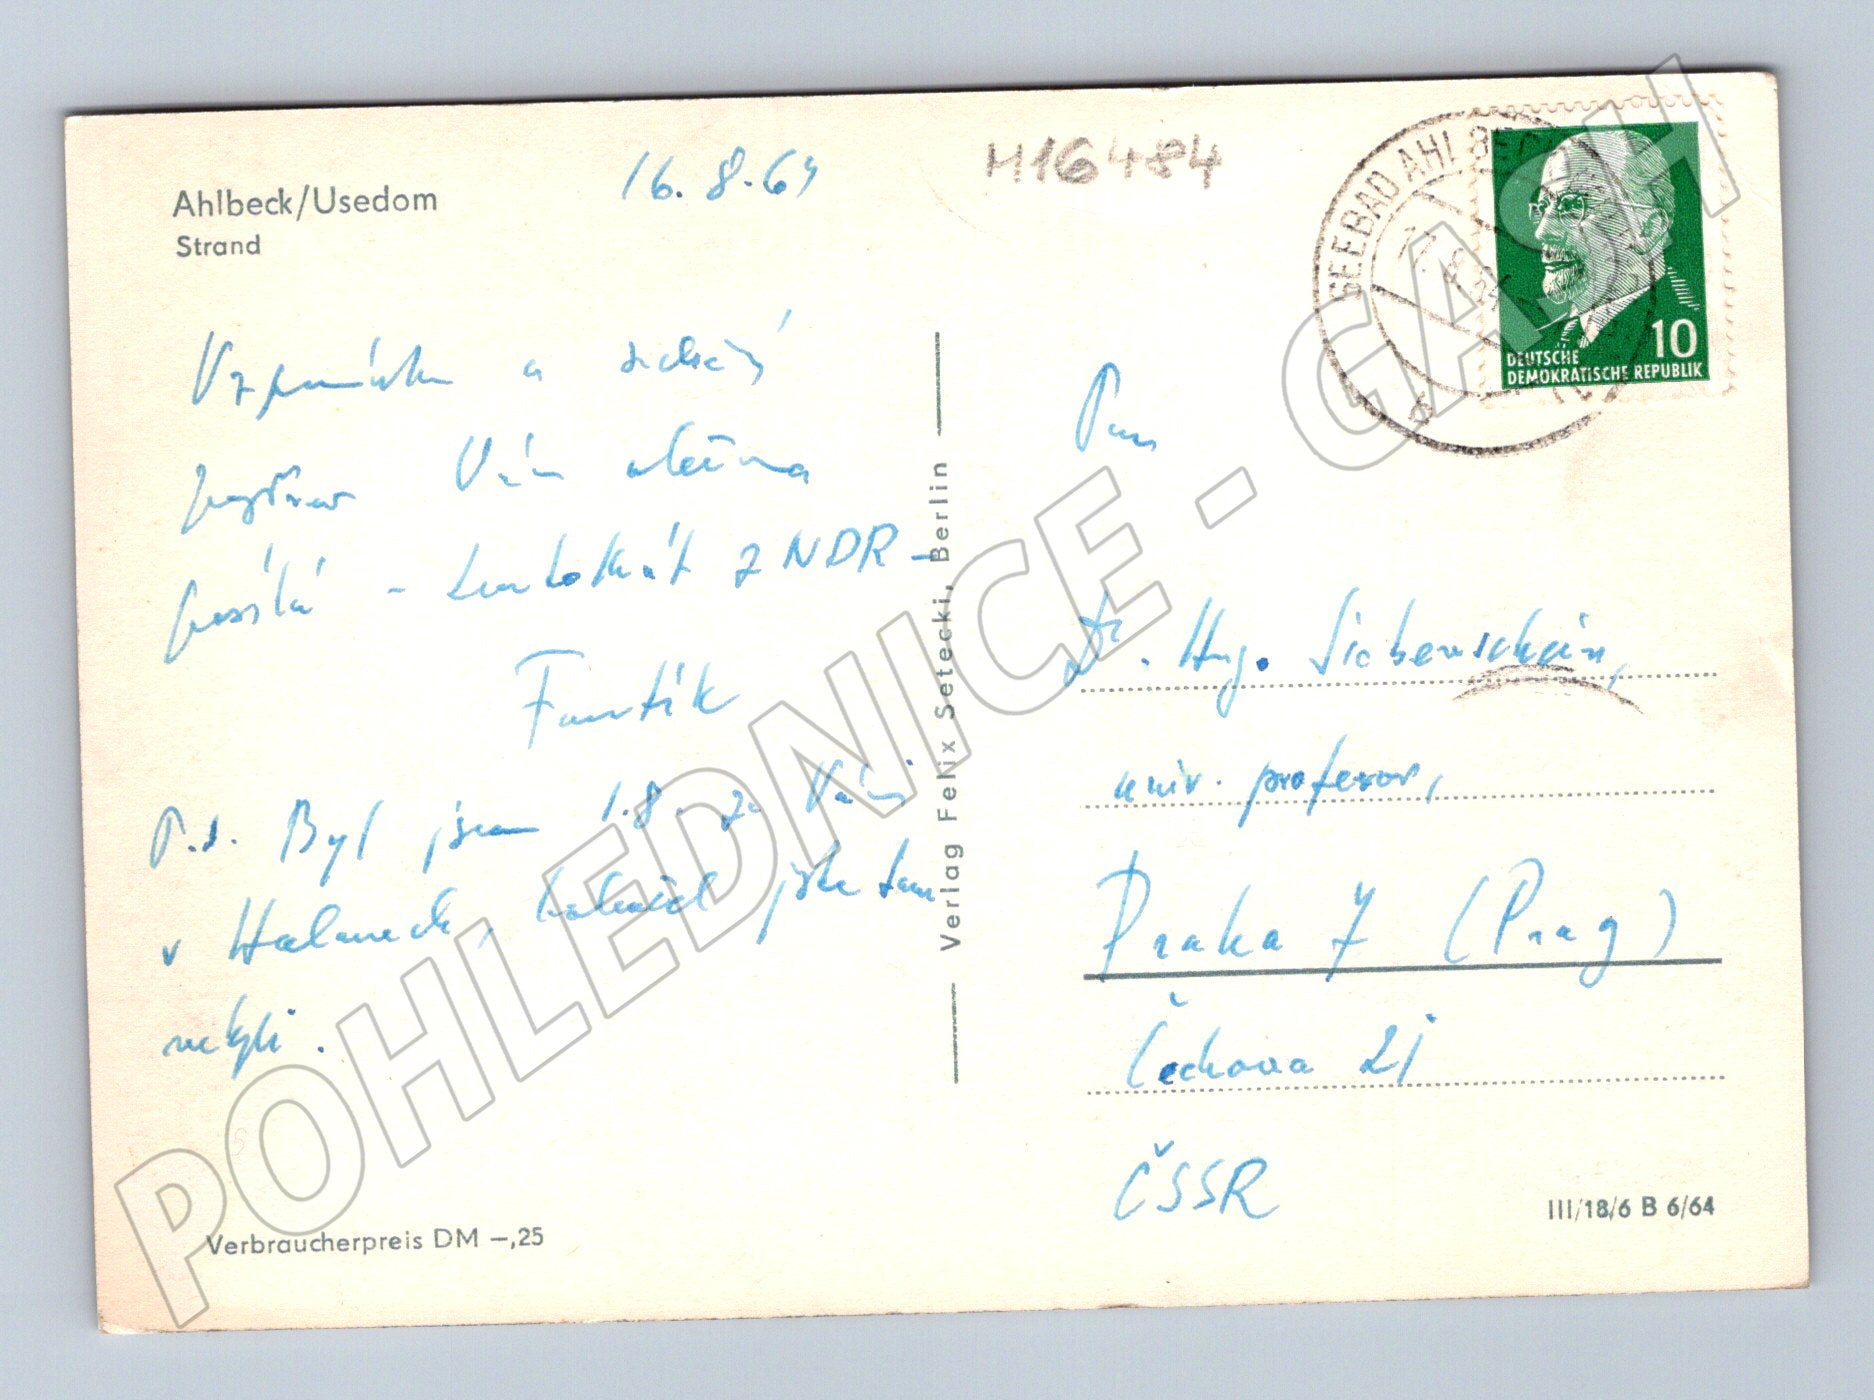 Ahlbeck/Usedom
Strand
16. 8. 64
M16484
SEEBAD AHLBECK
DEUTSCHE
DEMOKRATISCHE REPUBLIK
10
Vzpomínku a srdečný
pozdrav Vám všema
posílá - tentokrát z NDR -
Fantík
P.s. Byl jsem 1.8. za Vámi
v Hale, jste tam
nebyli.
Verbraucherpreis DM —,25
Verlag Felix Setecki, Berlin
Pan
Dr. Hugo Siebenschein,
univ. profesor,
Praha 7 (Prag)
Čechova 21
ČSSR
III/18/6 B 6/64
POHLEDNICE - GASH